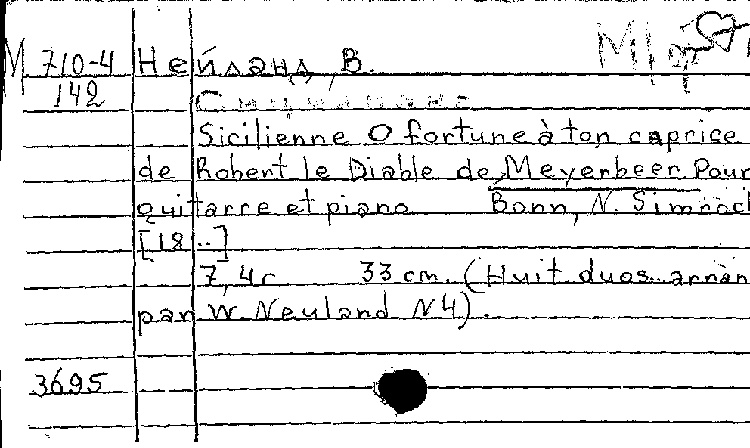 М 710-4 Нейланд, В.
142
Sicilienne O fortune à ton caprice
de Robert le Diable de Meyerbeer. Pour
guitarre et piano Bonn, N. Simrock
[18..]
7, 4с 33 cm. (Huit duos arran
par W. Neuland N4).
3695